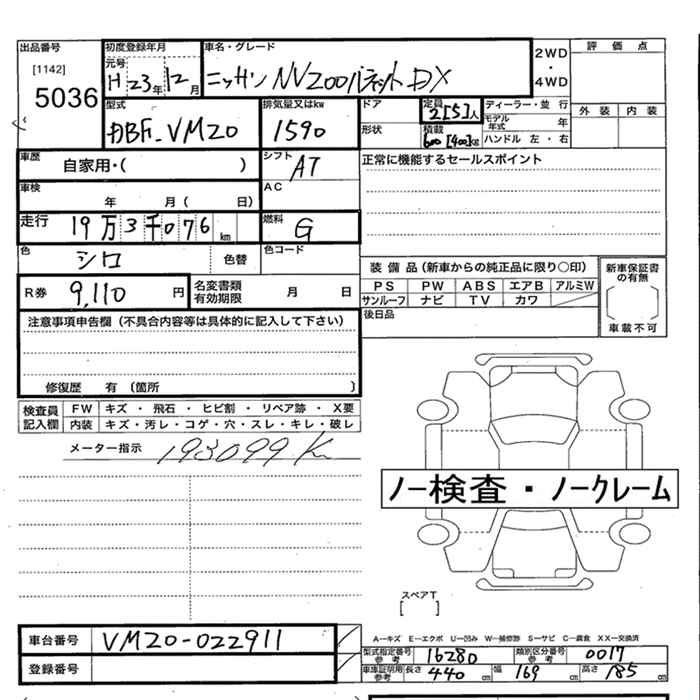 出品番号 [1142] 5036
初度登録年月 元号 H 23年 12月
車名・グレード ニッサン NV200バネット DX
2WD・4WD
評価点
外装 内装
型式 DBF-VM20
排気量又はkw 1590
ドア
形状
定員 2[5]人
積載 600[400]kg
ディーラー・並行
モデル年式 年
ハンドル 左・右
車歴 自家用・( )
シフト AT
正常に機能するセールスポイント
車検 年 月( 日)
AC
走行 19万3千076km
燃料 G
色 シロ 色替
色コード
R券 9,110円
名変書類有効期限 月 日
装備品(新車からの純正品に限り○印)
PS PW ABS エアB アルミW
サンルーフ ナビ TV カワ
新車保証書の有無
車載不可
後日品
注意事項申告欄(不具合内容等は具体的に記入して下さい)
修復歴 有(箇所 )
検査員記入欄
FW キズ・飛石・ヒビ割・リペア跡・X要
内装 キズ・汚レ・コゲ・穴・スレ・キレ・破レ
メーター指示 193099 K
ノー検査・ノークレーム
スペアT
[ ]
車台番号 VM20-022911
登録番号
A―キズ E―エクボ U―凹み W―補修跡 S―サビ C―腐食 XX―交換済
型式指定番号 参考 16280
類別区分番号 参考 0017
車庫証明用 参考 長さ 440cm 幅 169cm 高さ 185cm